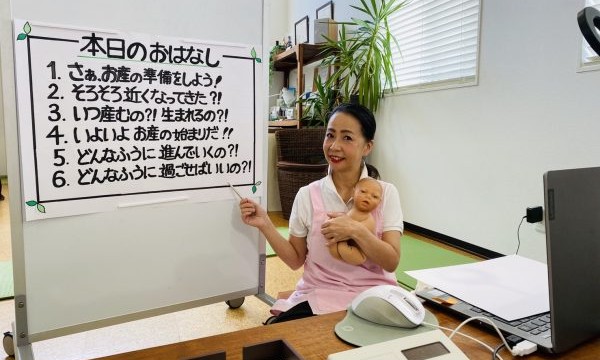 本日のおはなし
1. さぁ、お産の準備をしよう!
2. そろそろ近くなってきた?!
3. いつ産むの?! 生まれるの?!
4. いよいよ お産の始まりだ!!
5. どんなふうに 進んでいくの?!
6. どんなふうに 過ごせばいいの?!